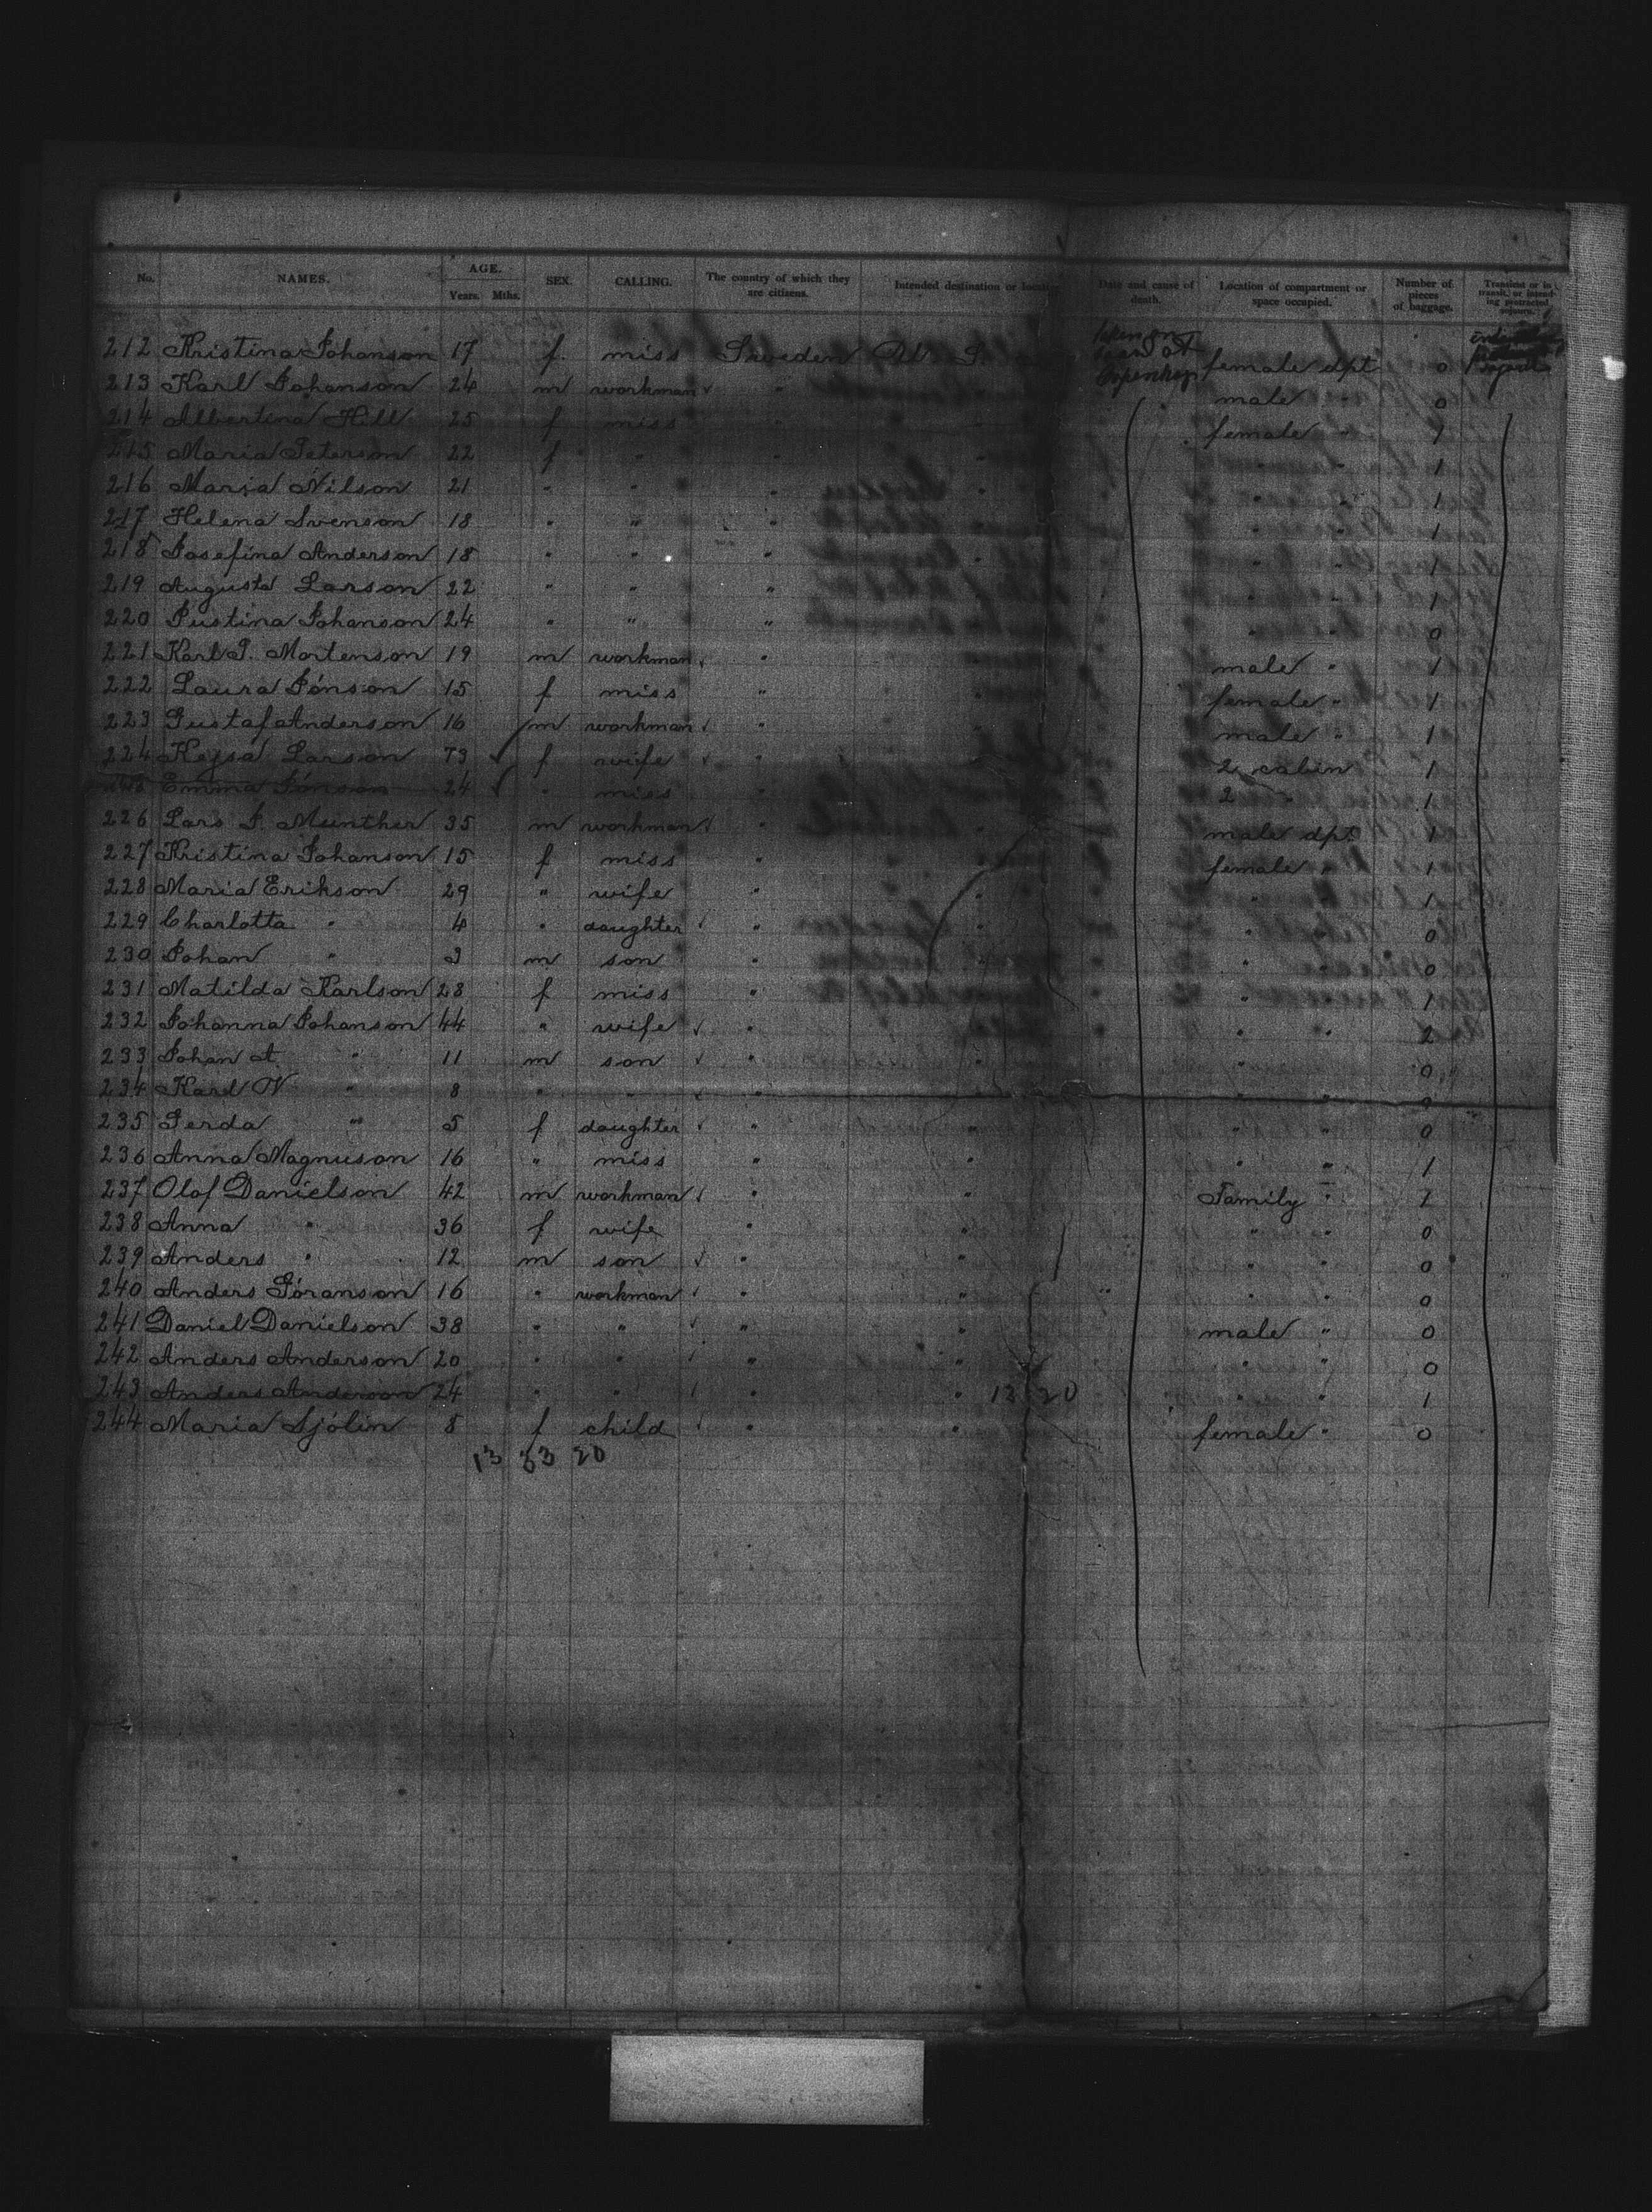 No. NAMES. AGE. Years. Mths. SEX. CALLING. The country of which they are citizens. Intended destination or Date and cause of death. Location of compartment or space occupied. Number of pieces of baggage. Transient or in transit, or intending protracted sojourn.
212 Kristina Johanson 17 f. miss Sweden U. S. female dpt. 0
213 Karl Johanson 24 m workman " male " 0
214 Albertina Hill 25 f miss " " female " 1
215 Maria Peterson 22 f " " " " " 1
216 Maria Nilson 21 " " " " " " 1
217 Helena Svenson 18 " " " " " 1
218 Josefina Anderson 18 " " " " " " 1
219 Augusta Larson 22 " " " " " 1
220 Justina Johanson 24 " " " " " 0
221 Karl J. Mortenson 19 m workman " " male " 1
222 Laura Jönson 15 f miss " " female " 1
223 Gustaf Anderson 16 m workman " " male " 1
224 Kejsa Larson 73 f wife " 2 cabin 1
Emma Jönson 24 " miss " 2 " 1
226 Lars J. Munther 35 m workman " " male dpt. 1
227 Kristina Johanson 15 f miss " " female " 1
228 Maria Erikson 29 " wife " " " " 1
229 Charlotta " 4 " daughter " " " " 0
230 Johan " 3 m son " " " " 0
231 Matilda Karlson 28 f miss " " " " 1
232 Johanna Johanson 44 " wife " " " " 2
233 Johan A. " 11 m son " " " " 0
234 Karl W " 8 " " " " " 0
235 Gerda " 5 f daughter " " " " 0
236 Anna Magnuson 16 " miss " " " " 1
237 Olof Danielson 42 m workman " " Family " 1
238 Anna " 36 f wife " " " " 0
239 Anders " 12 m son " " " " 0
240 Anders Göranson 16 " workman " " " " 0
241 Daniel Danielson 38 " " " " male " 0
242 Anders Anderson 20 " " " " " " 0
243 Anders Anderson 24 " " " " 13 20 " " 1
244 Maria Sjölin 8 f child " " female " 0
13 33 20